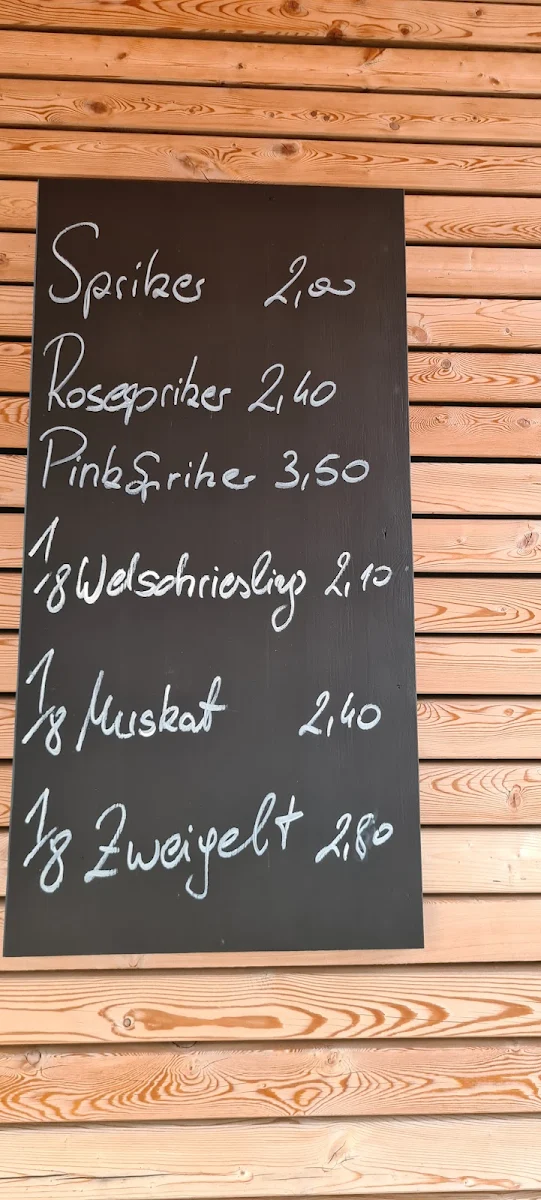 Spritzer 2,00
Rosespritzer 2,40
Pink Spritzer 3,50
1/8 Welschriesling 2,10
1/8 Muskat 2,40
1/8 Zweigelt 2,80